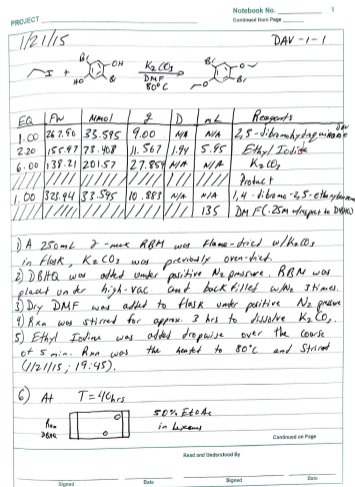 Notebook No. 1
PROJECT Continued From Page
1/21/15 DAV-1-1
Br OH K2CO3 Br O
I + DMF
HO Br 80°C O Br
EQ FW mmol g D mL Reagents
1.00 267.90 33.595 9.00 N/A N/A 2,5-dibromohydroquinone
2.20 155.97 73.908 11.567 1.94 5.95 Ethyl Iodide
6.00 138.21 201.57 27.859 N/A N/A K2CO3
Product
1.00 323.94 33.595 10.883 N/A N/A 1,4-dibromo-2,5-
135 DMF (.25M w/respect to DBHQ)
1) A 250mL 2-neck RBN was flame-dried w/K2CO3
in flask, K2CO3 was previously oven-dried.
2) DBHQ was added under positive N2 pressure. RBN was
placed under high-vac and back filled w/N2 3 times.
3) Dry DMF was added to flask under positive N2 pressure
4) Rxn was stirred for approx. 3 hrs to dissolve K2CO3.
5) Ethyl Iodine was added dropwise over the course
of 5 min. Rxn was the heated to 80°C and Stirred
(1/21/15; 19:45).
6) At T=40hrs
Rxn 50% EtOAc
DBHQ in hexanes
Continued on Page
Read and Understood By
Signed Date Signed Date